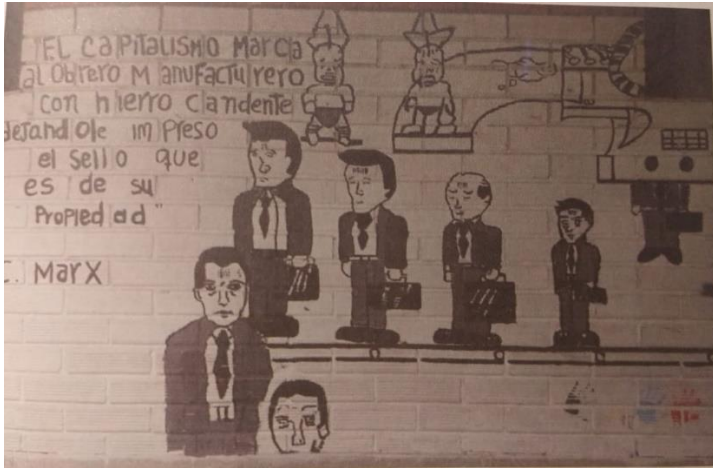 "EL CAPITALISMO MARCA
al OBrERO MANUFACTURERO
CON HIERRO CANDENTE
DEJANDOLE IMPRESO
el Sello QUE
es DE SU
PROPIEDAD"
C. MARX